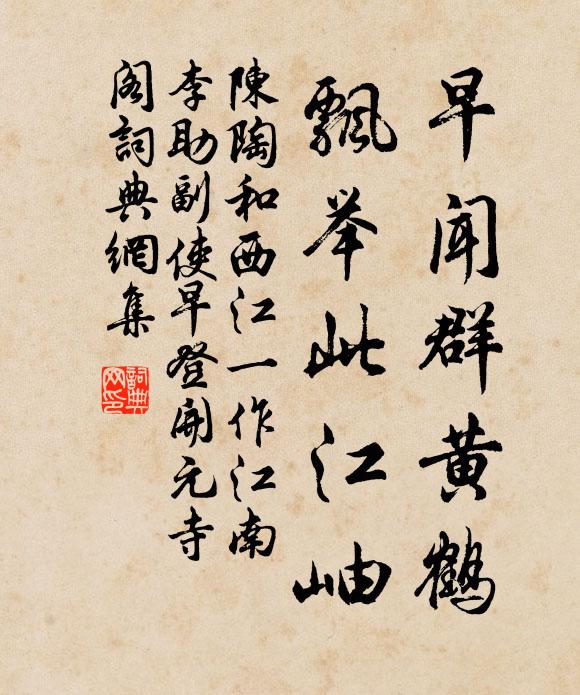 早聞群黄鶴
飄举此江岫
陳陶和西江一作江南
李助副使早登開元寺
阁詞典網集
詞典网印